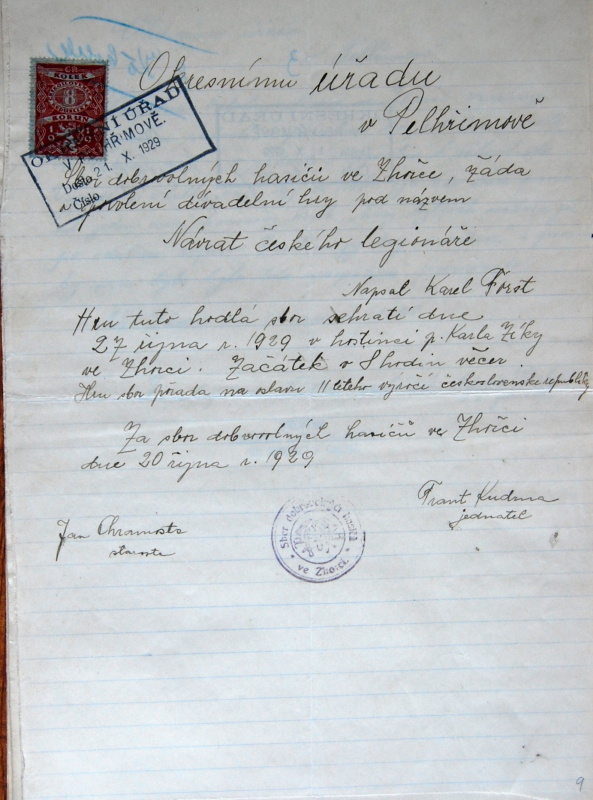 Okresnímu úřadu
v Pelhřimově
ČS.
KOLEK
8
KORUN
OKRESNÍ ÚŘAD
V PELHŘIMOVĚ.
Došlo 21. X. 1929
Číslo
Sbor dobrovolných hasičů ve Zhořce, žádá
o povolení divadelní hry pod názvem
Návrat českého legionáře
Napsal Karel Först
Hru tuto hodlá sbor sehrati dne
27 října r. 1929 v hostinci p. Karla Zíky
ve Zhořci. Začátek v 8 hodin večer.
Hru sbor pořada na oslavu 11 letého vyročí československe republiky
Za sbor dobrovolných hasičů ve Zhořci
dne 20 října r. 1929
Frant Kudrna
jednatel
Jan Chramosta
starosta
Sbor dobrovolných hasičů
ve Zhořci.
9